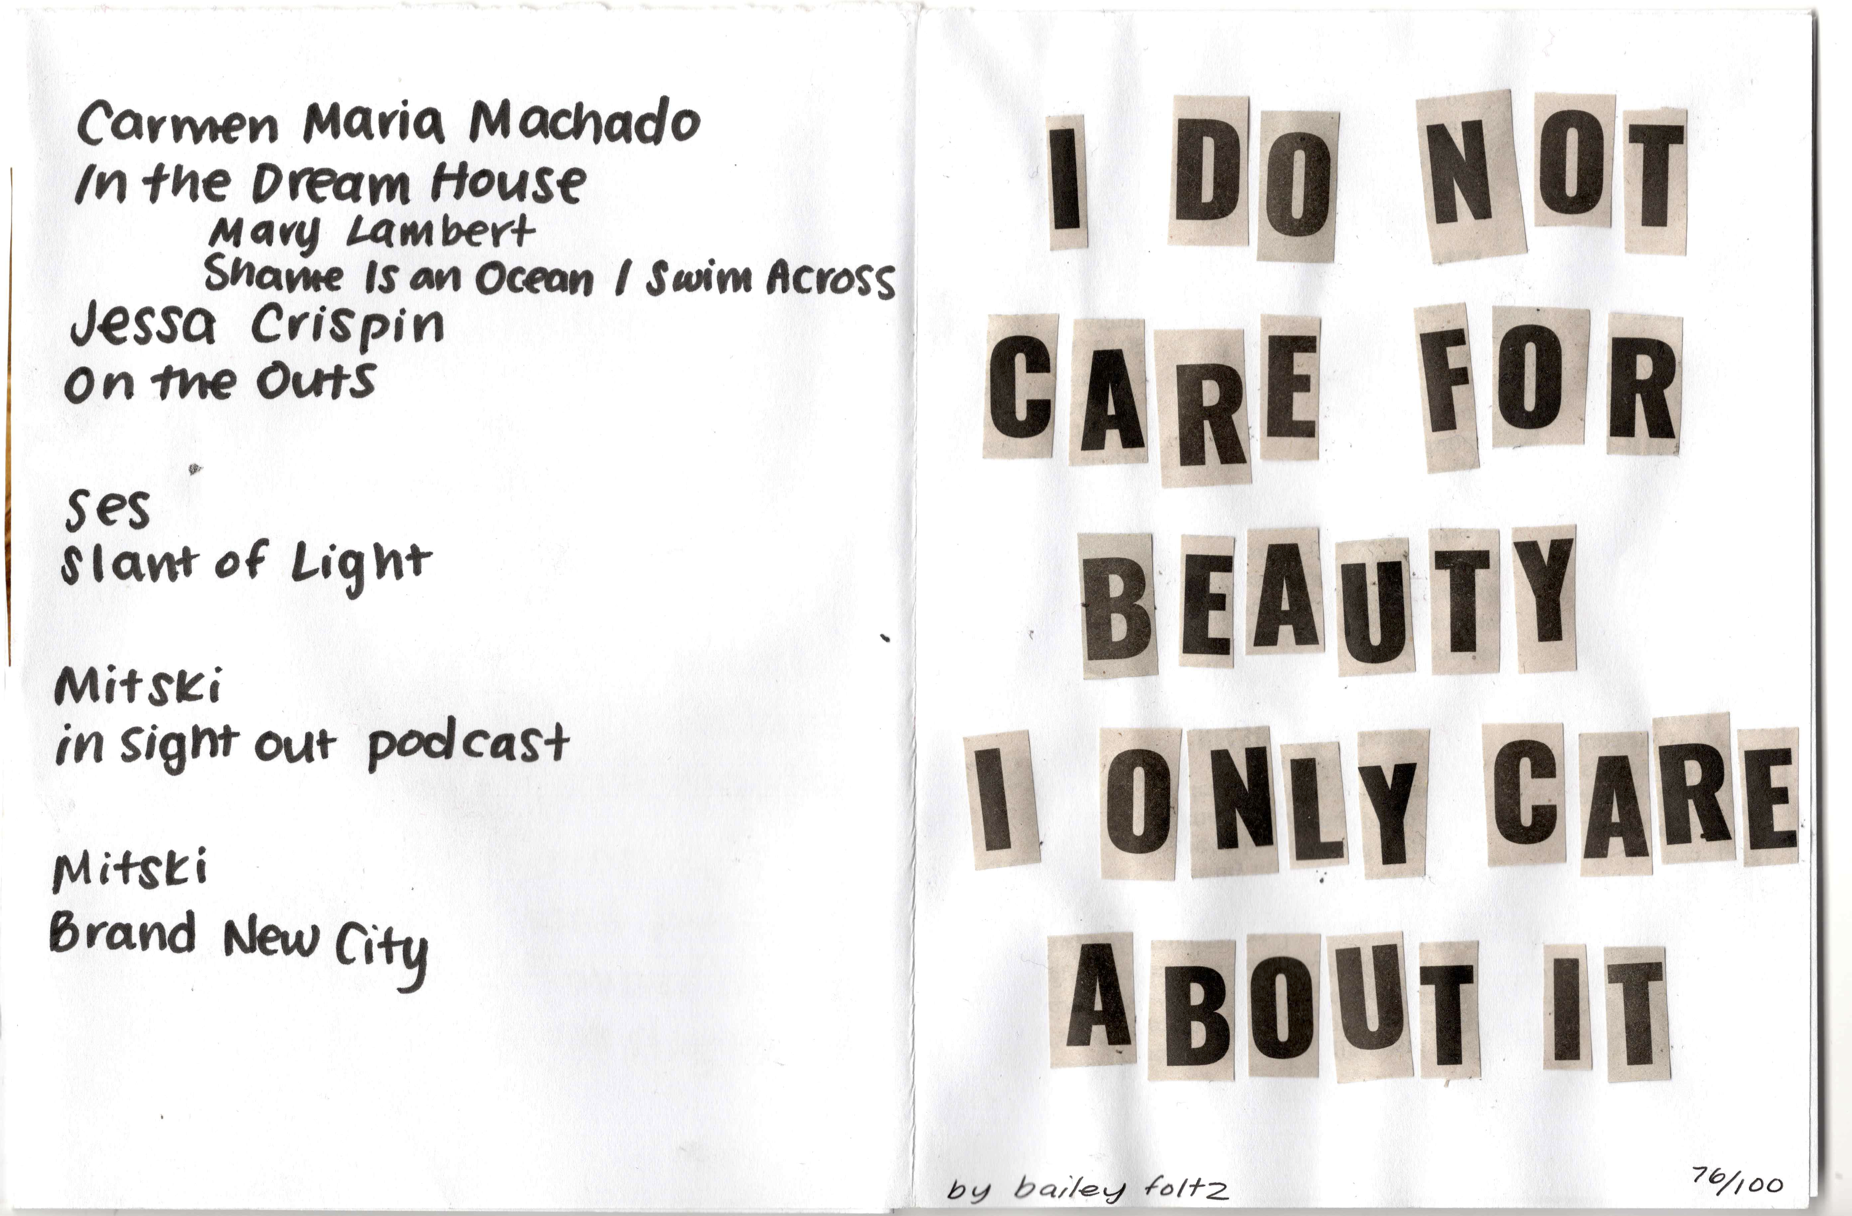 Carmen Maria Machado
In the Dream House
Mary Lambert
Shame Is an Ocean I Swim Across
Jessa Crispin
On the Outs
ses
Slant of Light
Mitski
in sight out podcast
Mitski
Brand New City
I DO NOT
CARE FOR
BEAUTY
I ONLY CARE
ABOUT IT
by bailey foltz
76/100